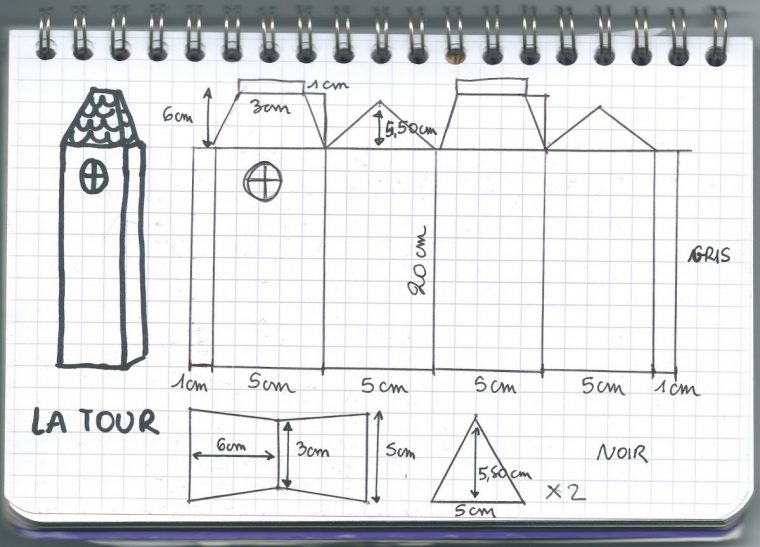 6cm
3cm
1cm
5,50cm
20cm
GRIS
1cm
5cm
5cm
5cm
5cm
1cm
LA TOUR
6cm
3cm
5cm
5,50cm
5cm
X2
NOIR